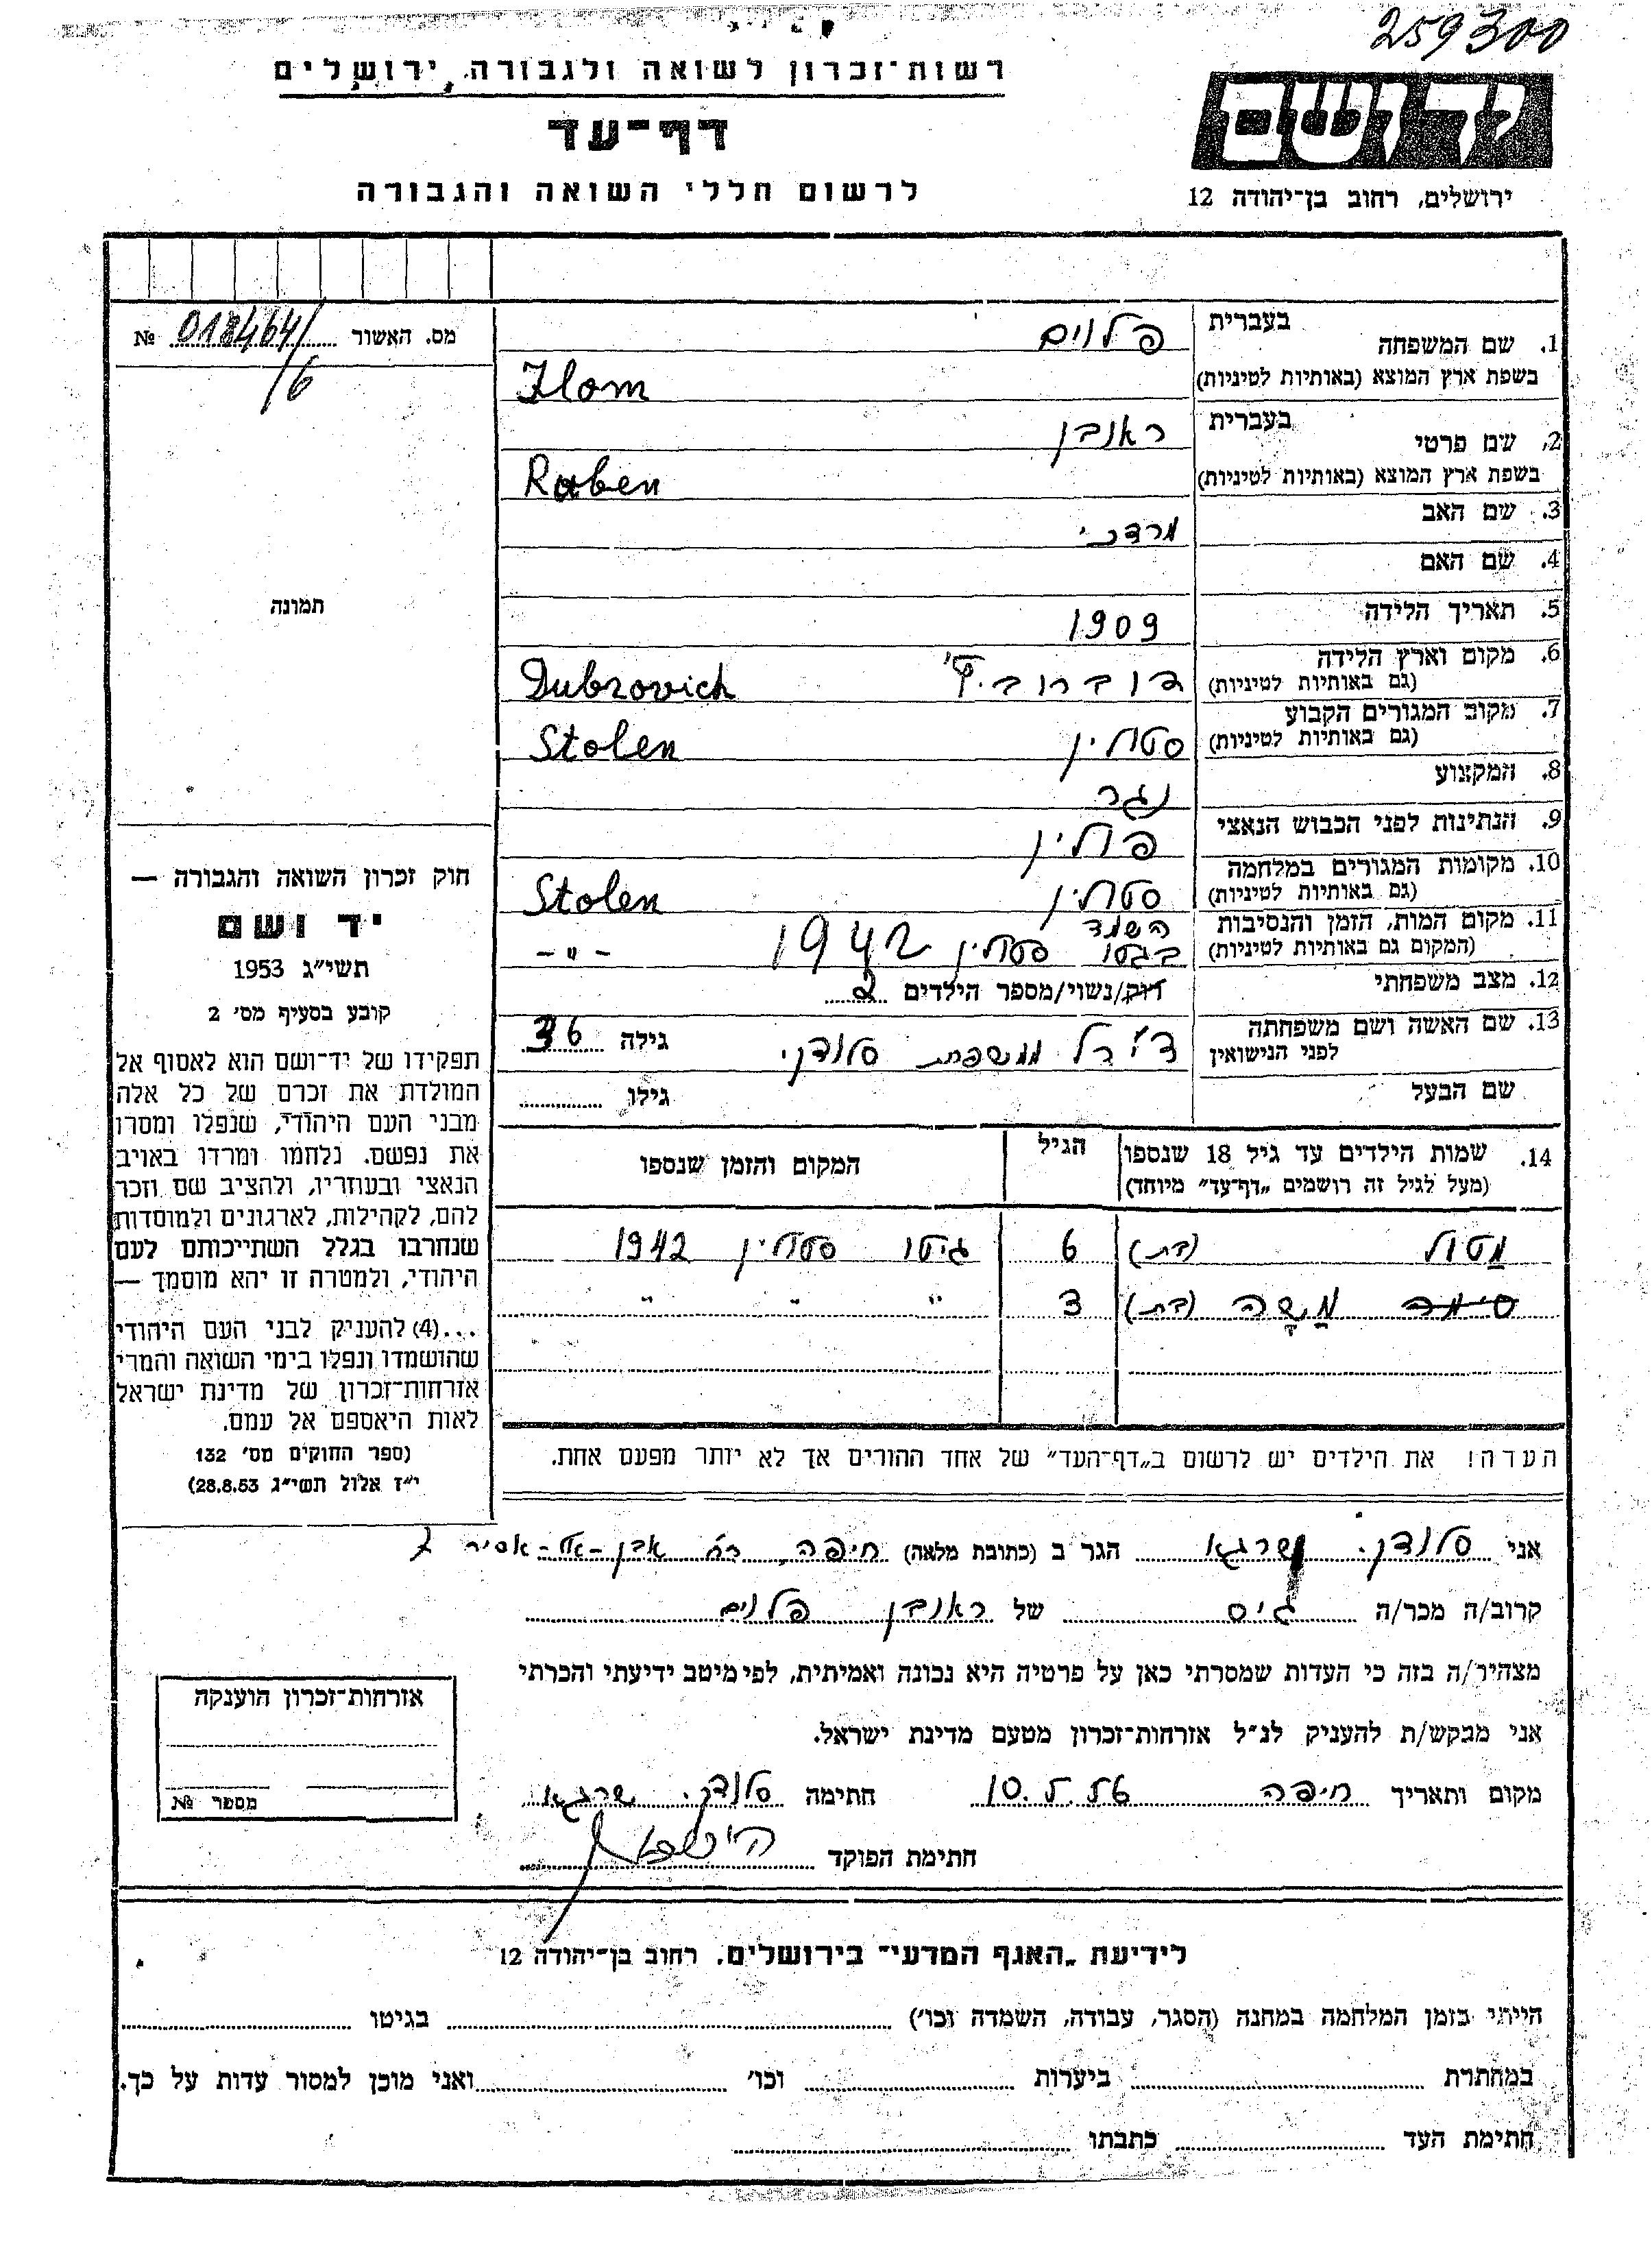 259300
רשות־זכרון לשואה ולגבורה, ירושלים
דף־עד
לרשום חללי השואה והגבורה
יד ושם
ירושלים, רחוב בן־יהודה 12
מס. האשור 018464/6 №
תמונה
1. שם המשפחה בעברית פלוים
בשפת ארץ המוצא (באותיות לטיניות) Flom
2. שם פרטי בעברית ראובן
בשפת ארץ המוצא (באותיות לטיניות) Ruben
3. שם האב מרדכי
4. שם האם
5. תאריך הלידה 1909
6. מקום וארץ הלידה (גם באותיות לטיניות) דוברוביץ' Dubrovich
7. מקום המגורים הקבוע (גם באותיות לטיניות) סטולין Stolen
8. המקצוע נגר
9. הנתינות לפני הכבוש הנאצי פולין
10. מקומות המגורים במלחמה (גם באותיות לטיניות) סטולין Stolen
11. מקום המות, הזמן והנסיבות (המקום גם באותיות לטיניות) הושמד בגטו סטולין 1942 -"-
12. מצב משפחתי רוק/נשוי/מספר הילדים 2
13. שם האשה ושם משפחתה לפני הנישואין ממשפחת סלודקי גילה 36
שם הבעל גילו
14. שמות הילדים עד גיל 18 שנספו הגיל המקום והזמן שנספו
(מעל לגיל זה רושמים „דף־עד" מיוחד)
מַטול (בת) 6 גיטו סטולין 1942
סימה מַשָה (בת) 3 " " "
הערה! את הילדים יש לרשום ב„דף־העד" של אחד ההורים אך לא יותר מפעם אחת.
חוק זכרון השואה והגבורה —
יד ושם
תשי"ג 1953
קובע בסעיף מס' 2
תפקידו של יד־ושם הוא לאסוף אל
המולדת את זכרם של כל אלה
מבני העם היהודי, שנפלו ומסרו
את נפשם. נלחמו ומרדו באויב
הנאצי ובעוזריו, ולהציב שם וזכר
להם, לקהילות, לארגונים ולמוסדות
שנחרבו בגלל השתייכותם לעם
היהודי, ולמטרה זו יהא מוסמך —
...(4) להעניק לבני העם היהודי
שהושמדו ונפלו בימי השואה והמרי
אזרחות־זכרון של מדינת ישראל
לאות היאספם אל עמם.
(ספר החוקים מס' 132
י"ז אלול תשי"ג 28.8.53)
אני סלודקי שרגא הגר ב (כתובת מלאה) חיפה, רח' אבן-אל-אסיר 7
קרוב/ה מכר/ה גיס של ראובן פלוים
מצהיר/ה בזה כי העדות שמסרתי כאן על פרטיה היא נכונה ואמיתית, לפי מיטב ידיעתי והכרתי
אני מבקש/ת להעניק לנ"ל אזרחות־זכרון מטעם מדינת ישראל.
מקום ותאריך חיפה 10.5.56 חתימה סלודקי שרגא
חתימת הפוקד
אזרחות־זכרון הוענקה
מספר №
לידיעת „האגף המדעי" בירושלים. רחוב בן־יהודה 12
הייתי בזמן המלחמה במחנה (הסגר, עבודה, השמדה וכו') בגיטו
במחתרת ביערות וכו' ואני מוכן למסור עדות על כך.
חתימת העד כתבתו